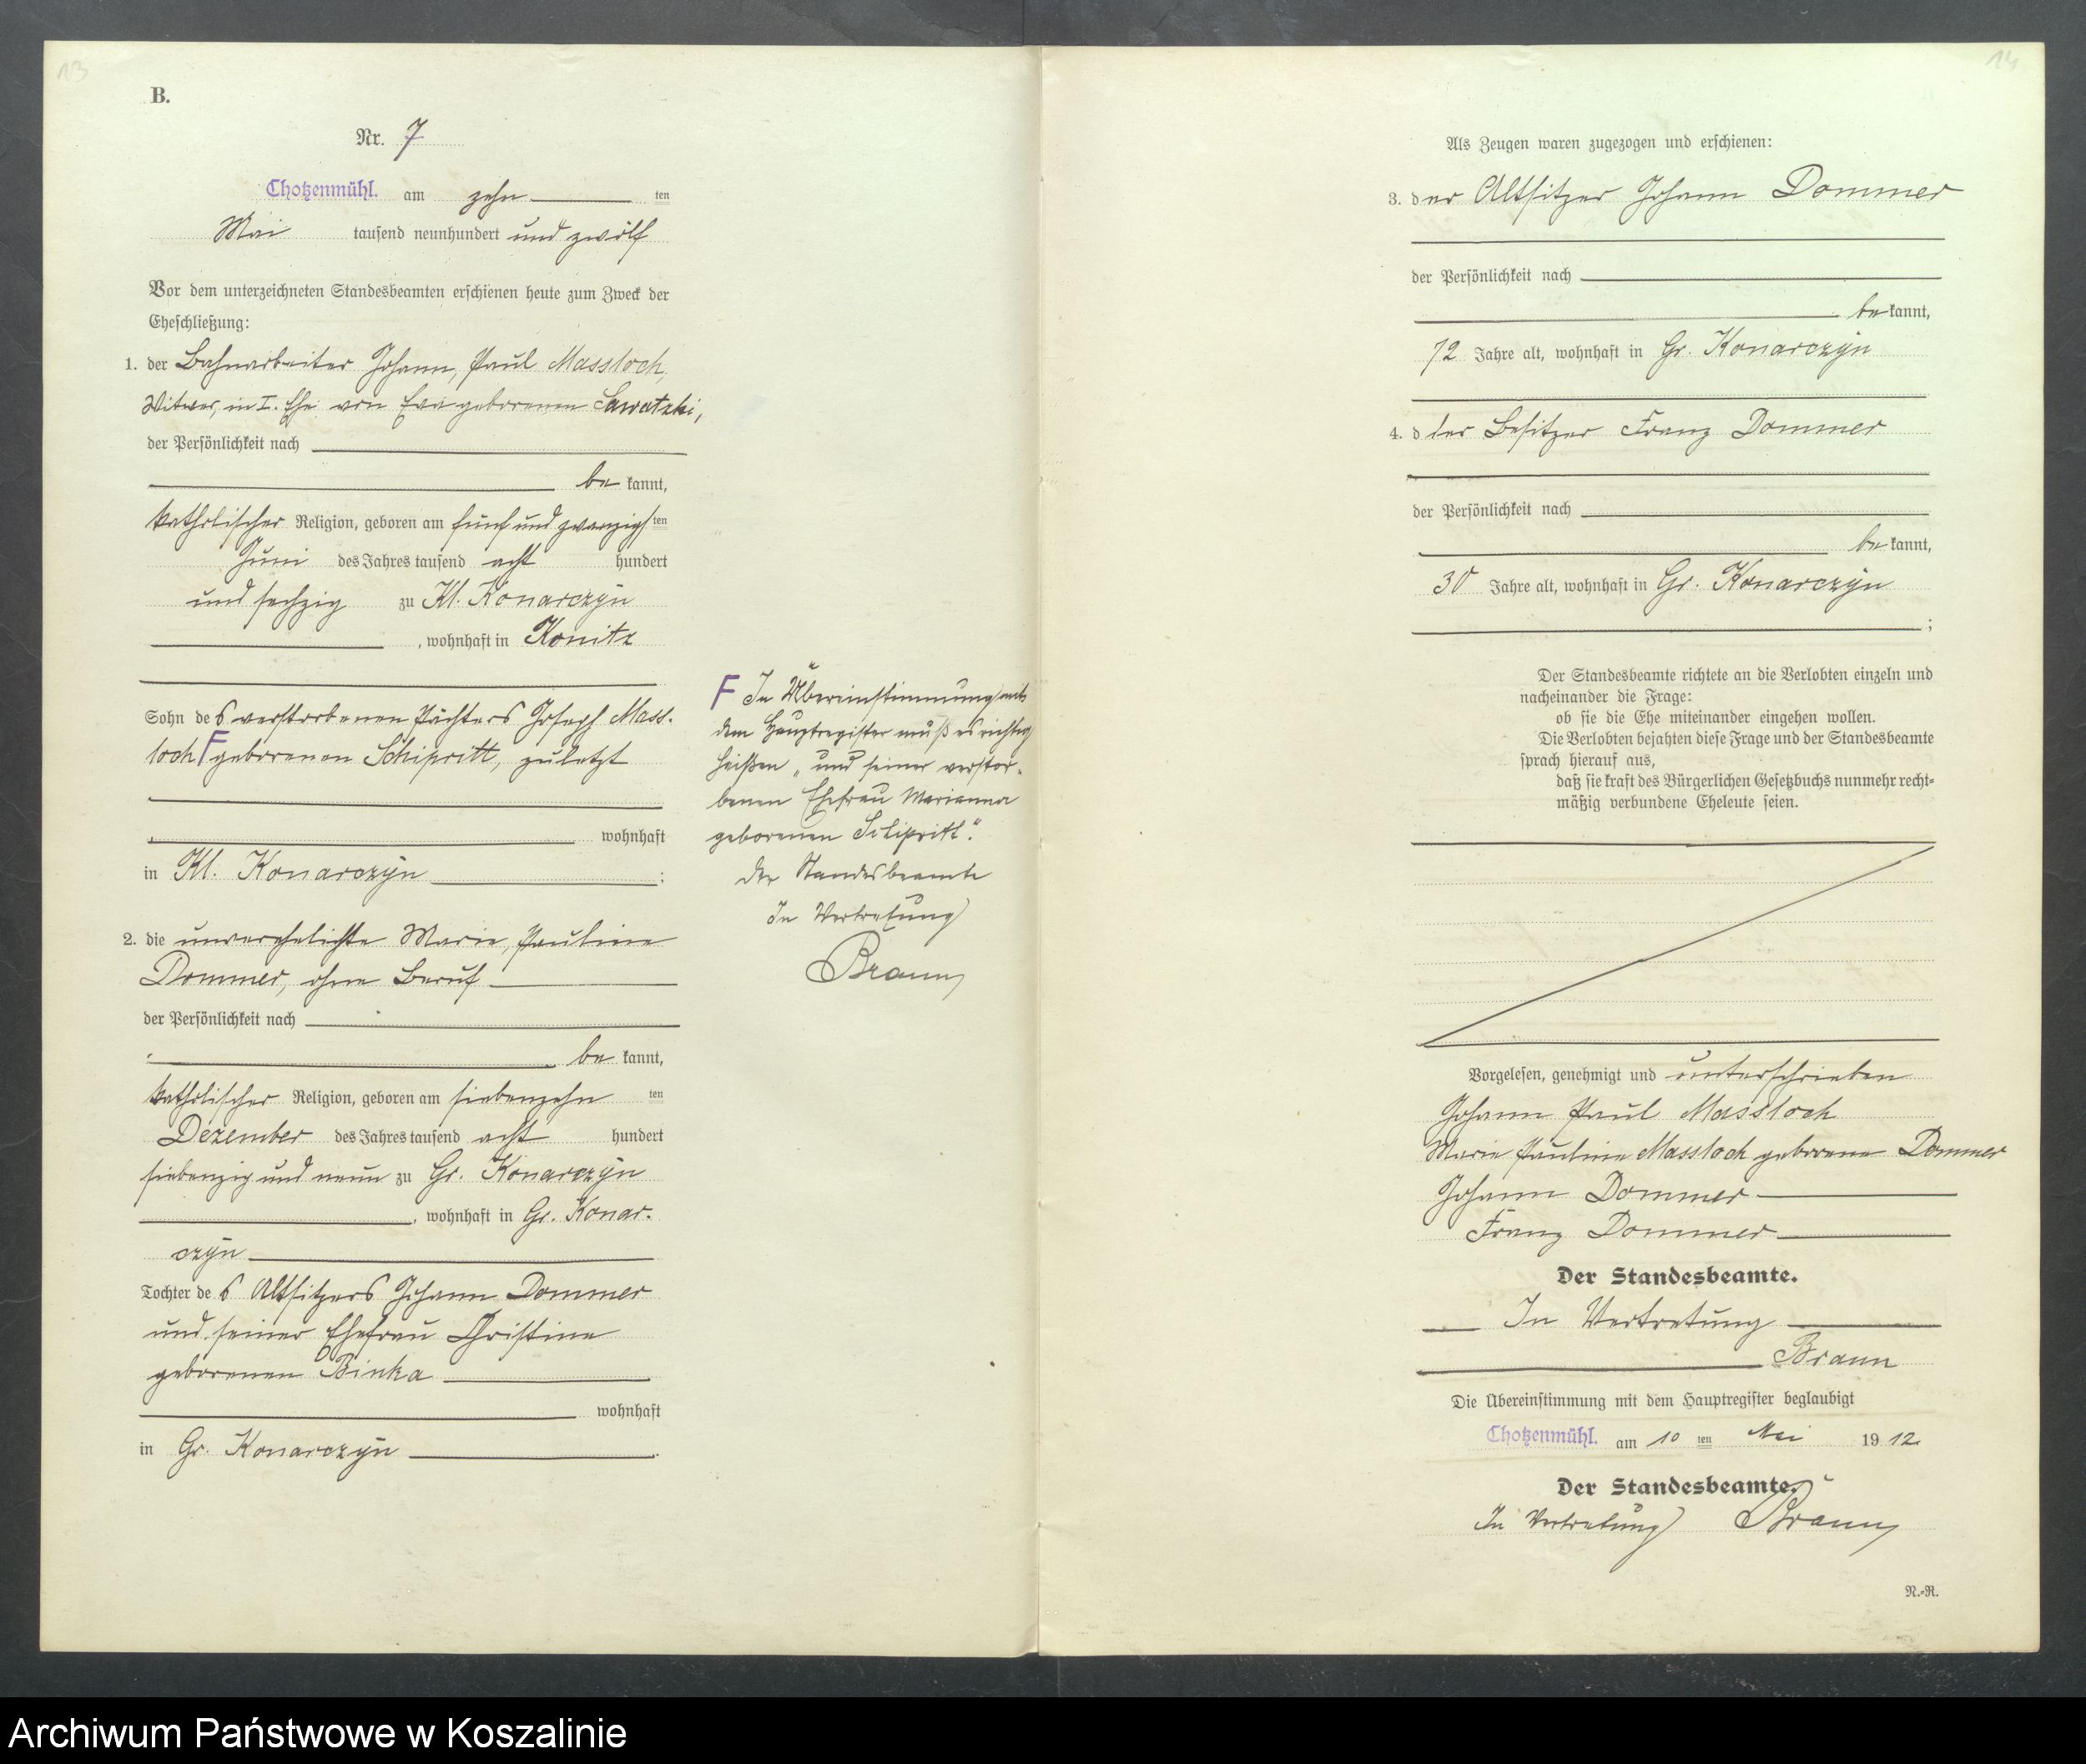 13
B.
Nr. 7
Chotzenmühl. am zehn ten
Mai tausend neunhundert und zwölf
Vor dem unterzeichneten Standesbeamten erschienen heute zum Zweck der
Eheschließung:
1. der Bahnarbeiter Johann, Paul Massloch,
Witwer, in I. Ehe von Eva geborenen Sawatzki,
der Persönlichkeit nach
be kannt,
katholischer Religion, geboren am fünf und zwanzigs ten
Juni des Jahres tausend acht hundert
und sechzig zu Kl. Konarczyn
, wohnhaft in Konitz
Sohn des verstorbenen Pächters Joseph Mass-
loch F geborenen Schipritt, zuletzt
wohnhaft
in Kl. Konarczyn ;
2. die unverehelichte Marie, Pauline
Dommer, ohne Beruf
der Persönlichkeit nach
be kannt,
katholischer Religion, geboren am siebenzehn ten
Dezember des Jahres tausend acht hundert
siebenzig und neun zu Gr. Konarczyn
, wohnhaft in Gr. Konar-
czyn
Tochter des Altsitzers Johann Dommer
und seiner Ehefrau Christine
geborenen Binka
wohnhaft
in Gr. Konarczyn .
F In Übereinstimmung mit
dem Hauptregister muß es richtig
heißen „und seiner verstor-
benen Ehefrau Marianna
geborenen Schipritt."
Der Standesbeamte
In Vertretung
Braun
14
Als Zeugen waren zugezogen und erschienen:
3. der Altsitzer Johann Dommer
der Persönlichkeit nach
be kannt,
72 Jahre alt, wohnhaft in Gr. Konarczyn
4. d der Besitzer Franz Dommer
der Persönlichkeit nach
be kannt,
30 Jahre alt, wohnhaft in Gr. Konarczyn
;
Der Standesbeamte richtete an die Verlobten einzeln und
nacheinander die Frage:
ob sie die Ehe miteinander eingehen wollen.
Die Verlobten bejahten diese Frage und der Standesbeamte
sprach hierauf aus,
daß sie kraft des Bürgerlichen Gesetzbuchs nunmehr recht-
mäßig verbundene Eheleute seien.
Vorgelesen, genehmigt und unterschrieben
Johann Paul Massloch
Marie Pauline Massloch geborene Dommer
Johann Dommer
Franz Dommer
Der Standesbeamte.
In Vertretung
Braun
Die Übereinstimmung mit dem Hauptregister beglaubigt
Chotzenmühl. am 10 ten Mai 1912
Der Standesbeamte.
In Vertretung Braun
N.-R.
Archiwum Państwowe w Koszalinie